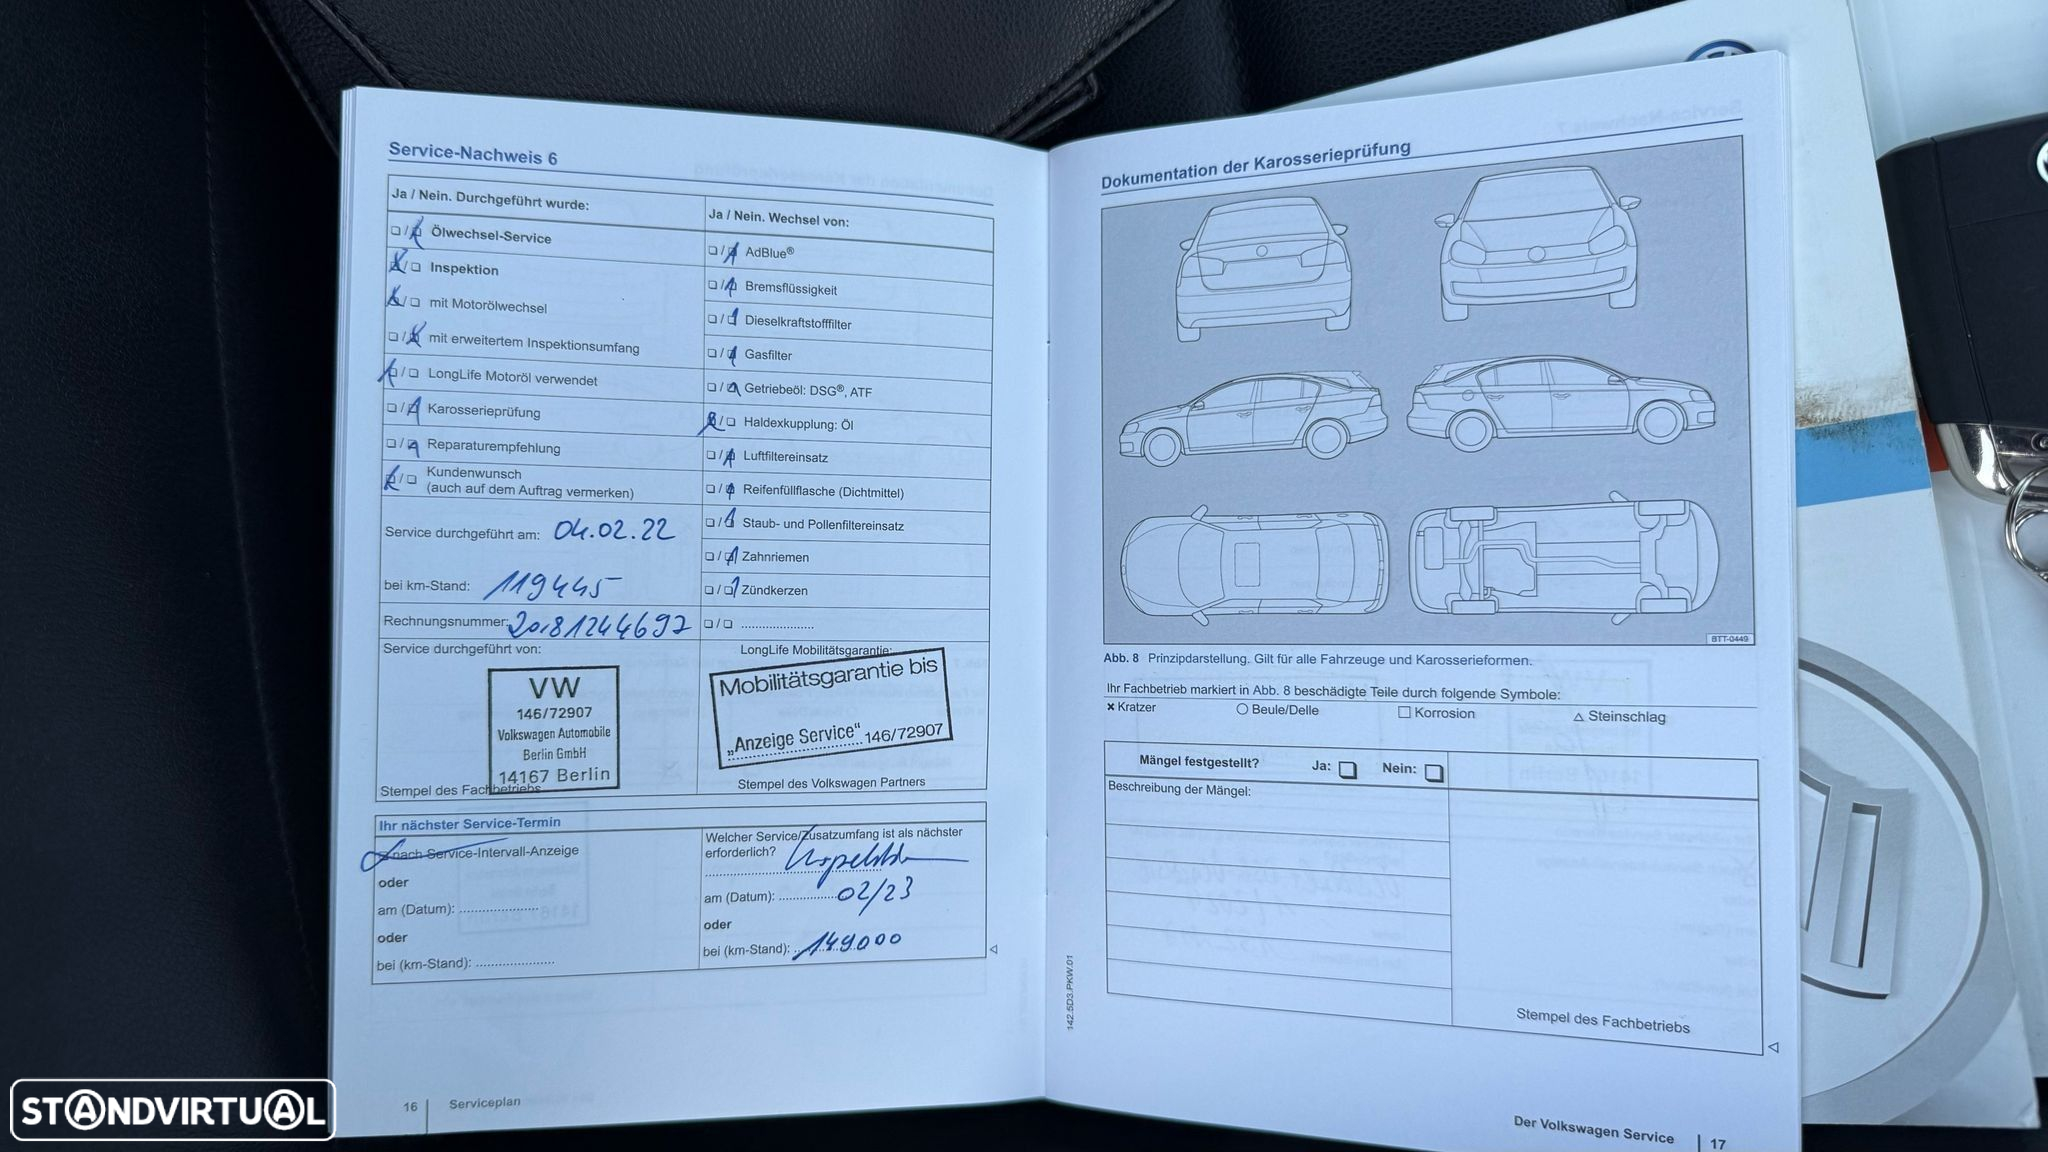 Service-Nachweis 6
Ja / Nein. Durchgeführt wurde:
Ölwechsel-Service
Inspektion
mit Motorölwechsel
mit erweitertem Inspektionsumfang
LongLife Motoröl verwendet
Karosserieprüfung
Reparaturempfehlung
Kundenwunsch
(auch auf dem Auftrag vermerken)
Service durchgeführt am: 04.02.22
bei km-Stand: 119445
Rechnungsnummer: 20181244697
Service durchgeführt von:
VW
146/72907
Volkswagen Automobile
Berlin GmbH
14167 Berlin
Stempel des Fachbetriebs
Ja / Nein. Wechsel von:
AdBlue®
Bremsflüssigkeit
Dieselkraftstofffilter
Gasfilter
Getriebeöl: DSG®, ATF
Haldexkupplung: Öl
Luftfiltereinsatz
Reifenfüllflasche (Dichtmittel)
Staub- und Pollenfiltereinsatz
Zahnriemen
Zündkerzen
LongLife Mobilitätsgarantie:
Mobilitätsgarantie bis
„Anzeige Service“ 146/72907
Stempel des Volkswagen Partners
Ihr nächster Service-Termin
nach Service-Intervall-Anzeige
oder
am (Datum):
oder
bei (km-Stand):
Welcher Service/Zusatzumfang ist als nächster
erforderlich? Inspektion
am (Datum): 02/23
oder
bei (km-Stand): 149000
16 Serviceplan
Dokumentation der Karosserieprüfung
BTT-0449
Abb. 8 Prinzipdarstellung. Gilt für alle Fahrzeuge und Karosserieformen.
Ihr Fachbetrieb markiert in Abb. 8 beschädigte Teile durch folgende Symbole:
Kratzer Beule/Delle Korrosion Steinschlag
Mängel festgestellt? Ja: Nein:
Beschreibung der Mängel:
Stempel des Fachbetriebs
142.5D3.PKW.01
Der Volkswagen Service 17
STANDVIRTUAL